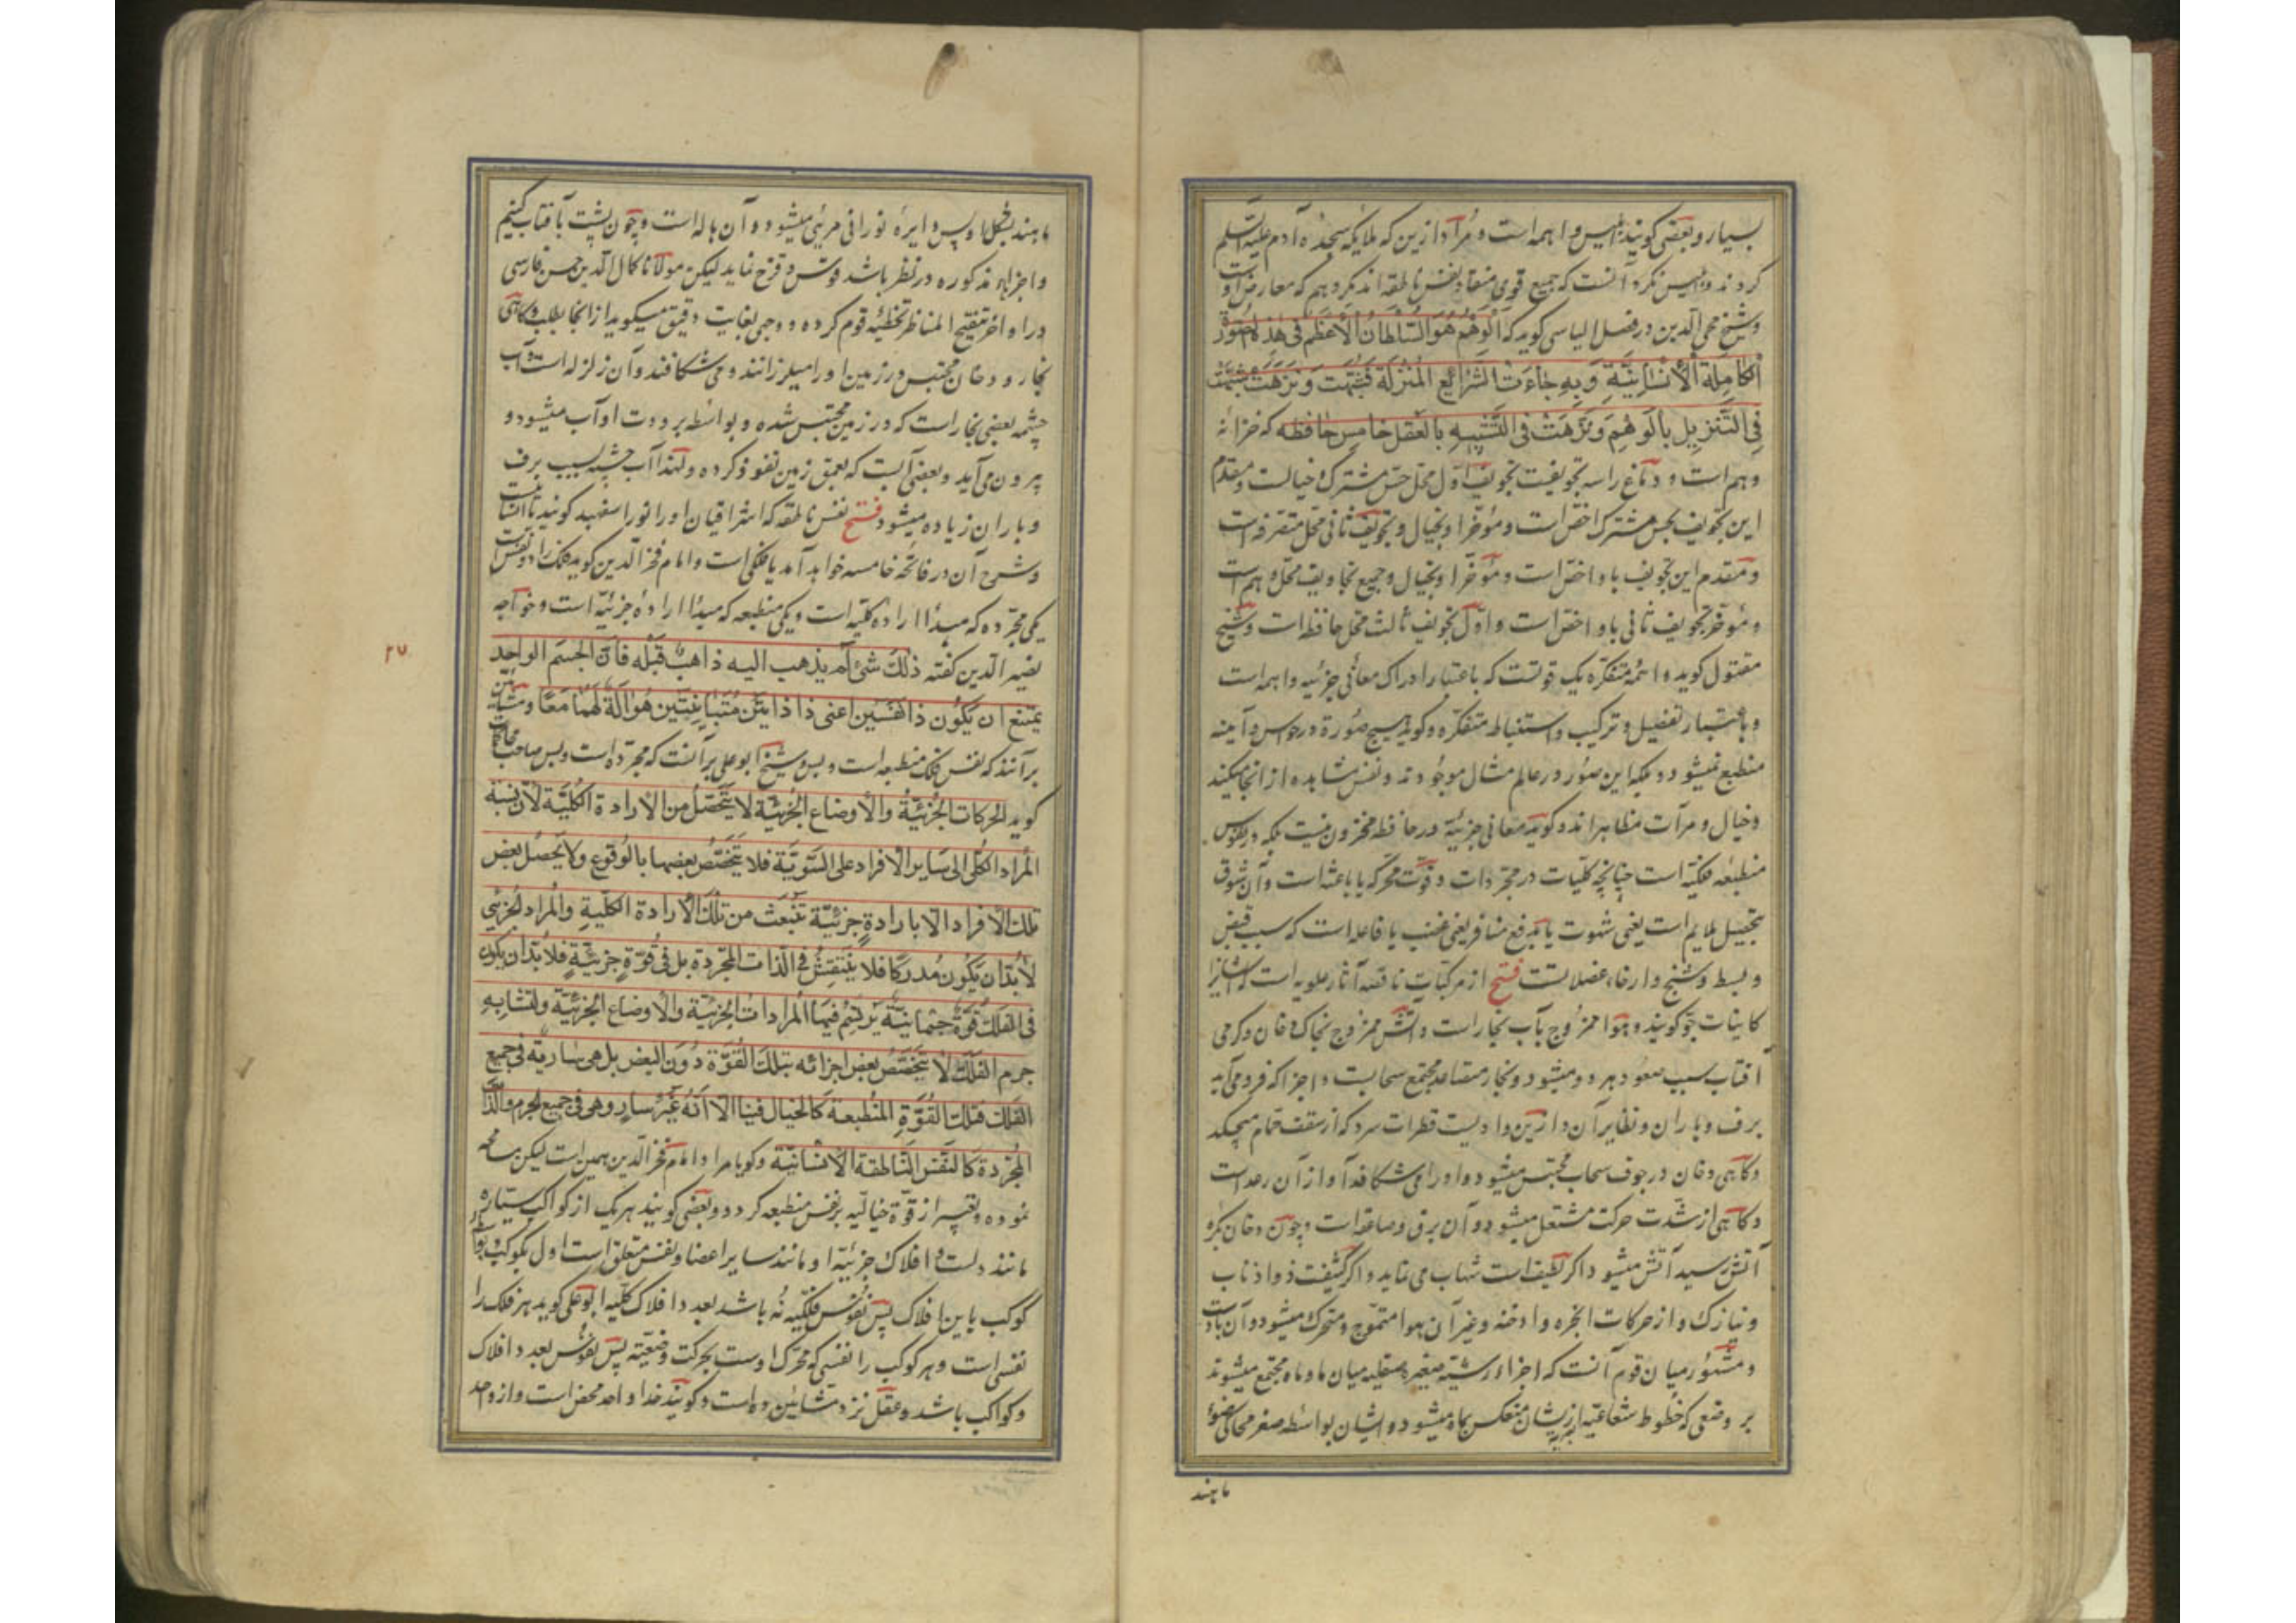 بسیار و بعضی کویند ابلیس واهمه است و مراد ازین که ملایکه سجده آدم علیه السلم
کردند و ابلیس نکرد آنست که جمیع قوی منقاد نفس ناطقه اند مکر وهم که معارض اوست
و شیخ محی الدین در فصل الیاسی کوید که اَلْوَهْمُ هُوَ السُّلطانُ الْاَعْظَمُ فی هٰذِهِ الصُّورَة
الکامِلَةِ الْاِنْسَانِیَّةِ وَ بِهِ جَاءَتْ الشَّرائِع المُنْزلَة فَشَبَّهَتْ وَ نَزَّهَتْ شَبَّهَتْ
فِی التَّنْزِیهِ بِالْوَهْمِ وَ نَزَّهَتْ فی التَّشبِیهِ بِالعَقْل خامس حافظه که خزانه
وهم است و دماغ را سه تجویفست تجویف اول محل حس مشترک و خیالست و مقدم
این تجویف بحس مشترک اخص است و مؤخر او بخیال و تجویف ثانی محل متصرفه است
و مقدم این تجویف باو اخص است و مؤخر او بخیال و جمیع تجاویف محل وهم است
و مؤخر تجویف ثانی باو اخص است و اول تجویف ثالث محل حافظه است و شیخ
مقتول کوید واهمه و متفکره یک قوتست که باعتبار ادراک معانی جزئیه واهمه است
و باعتبار تفصیل و ترکیب و استنباط متفکره و کوید هیچ صورة در حواس و آینه
منطبع نمیشود و بلکه این صور در عالم مثال موجودند و نفس مشاهده از آنجا میکند
و خیال و مرآت مظاهراند و کوید معانی جزئیه در حافظه مخزون نیست بلکه در نفوس
منطبعه فلکیه است چنانچه کلیات در مجردات و قوت محرکه یا باعثه است و آن شوق
بتحصیل ملایم است یعنی شهوت یا بدفع منافر یعنی غضب یا فاعله است که سبب قبض
و بسط و تشنج و ارخاء عضلاتست فتح از مرکبات ناقصه آثار علویه است که آنرا نیز
کاینات جو کویند و هوا ممزوج بآب بخار است و آتش ممزوج بخاک دخان و کرمی
آفتاب سبب صعود هر دو میشود و بخار متصاعد مجتمع سحابست و اجزا که فرو می آید
برف و باران و نظایر آن و ازین وادیست قطرات سرد که از سقف حمام میچکد
و کاهی دخان در جوف سحاب محتبس میشود و او را می شکافد و آواز آن رعد است
و کاهی از شدت حرکت مشتعل میشود و آن برق و صاعقه است و چون دخان بکره
آتش رسید آتش میشود و اکر لطیف است شهاب می نماید و اکر کثیفست ذوات اذناب
و نیازک و از حرکات ابخره و ادخنه و غیر آن هوا متموج و متحرک میشود و آن باد است
و مشهور میان قوم آنست که اجزاء رشیه صغیره صقیله میان ما و ماه مجتمع میشوند
بر وضعی که خطوط شعاعیه از ایشان منعکس بماه میشود و ایشان بواسطه صغر محاکی ضوء
ماهند
ماهند بشکل او پس دایرهٔ نورانی مرئی میشود و آن هاله است و چون پشت بآفتاب کنیم
و اجزاء مذکوره در نظر باشد قوس و قزح نماید لیکن مولانا کمال الدین حسن فارسی
در اواخر تنقیح المناظر تخطئه قوم کرده و وجهی بغایت دقیق میکوید از انجا بطلب و کاهی
بخار و دخان محتبس در زمین او را میلرزانند و می شکافند و آن زلزله است و آب
چشمه بعضی بخار است که در زمین محتبس شده و بواسطه برودت او آب میشود و
بیرون می آید و بعضی آبیست که بعمق زمین نفوذ کرده و لهذا آب چشمه بسبب برف
و باران زیاده میشود فتح نفس ناطقه که اشراقیان او را نور اسفهبد کویند یا انسانیست
و شرح آن در فاتحه خامسه خواهد آمد یا فلکی است و امام فخر الدین کوید فلک را دو نفس است
یکی مجرده که مبدأ ارادهٔ کلیه است و یکی منطبعه که مبدأ ارادهٔ جزئیه است و خواجه
نصیر الدین کفته ذلک شیٔ لم یذهب الیه ذاهب قَبْلَه فَاَنَّ الجِسْمَ الواحِد
یمتنع ان یکُون ذا نَفْسَین اعنی ذا ذاتَین مُتَبایِنَتَین هُوَ آلَة لَهُمَا مَعًا و مشائین
برآنند که نفس فلک منطبعه است و بس و شیخ ابو علی برآنست که مجرد است و بس صاحب محاکمات
کوید الحرکات الجُزئیَّةُ والْاَوضاع الجُزئیَّة لا یَتَحَصَّلُ من الْاِرادة الکُلِّیَّة لِاَنَّ نِسْبَة
المُراد الکُلّی الی سَایر الْاَفراد علی السَّوِیَّة فلا یَختَصُّ بعضها بالوُقوع و لا یَحصُل بعض
تلک الْاَفراد الا بارادةٍ جزئیَّة تَنْبَعِث من تلْکَ الْاِرادة الکلّیةِ والْمُراد الجُزئی
لابُدَّ ان یَّکُون مُدرکًا فلا یَنتَقِشُ فی الذات المجّردة بل فی قُوَّةٍ جزئیَّةٍ فلابُدَّ ان یکون
فی الفَلَک قوَّةٌ جسمانیَّة یَرتَسِمُ فیها المُرادات الجُزئیَّة والْاَوضاع الجُزئیَّة و لِتَشَابِهِ
جرم الفَلَک لا یَختَصُّ بعض اجزائه بتلکَ القُوَّة دُون البعض بل هی سَاریَة فی جمیع
الفَلک فتلک القُوَّةِ المنُطَبعة کَالخیال فینا الّا اَنَّهُ غَیر سارٍ و هی فی جمیع الجرم والذَّات
المُجَرَّدة کَالنَفْس النّاطقة الْاِنسَانیَّة و کویا مراد امام فخر الدین همین است لیکن مسامحه
نموده و تعبیر از قوة خیالیه بنفس منطبعه کرده و بعضی کویند هر یک از کواکب سیاره
مانند دلست و افلاک جزئیه او مانند سایر اعضا و نفس متعلق است اول بکوکب و بواسطه
کوکب باین افلاک پس نفوس فلکیه نُه باشد بعدد افلاک کلیه ابو علی کوید هر فلک را
نفسی است و هر کوکب را نفسی که محرک اوست بحرکت وضعیه پس نفوس بعدد افلاک
و کواکب باشد و عقل نزد مشائین ده است و کویند خدا واحد محض است و از واحد
۲۷